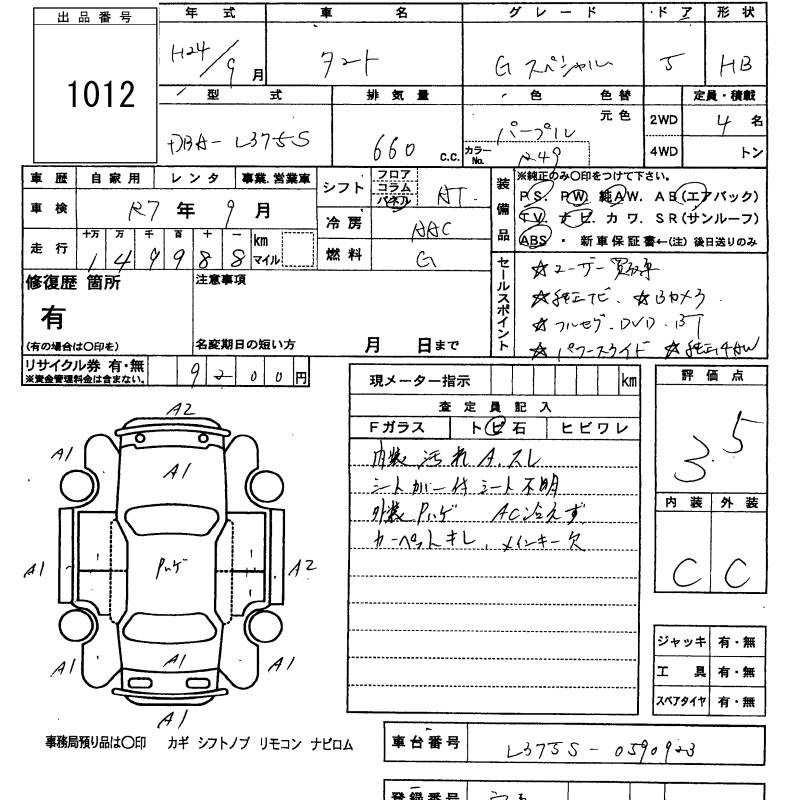 出品番号 年式 車名 グレード ドア 形状
1012 H24/9月 タント Gスペシャル 5 HB
型式 排気量 色 色替 定員・積載
元色 2WD 4名
DBA-L375S 660 C.C. パープル
カラーNo. R49 4WD トン
車歴 自家用 レンタ 事業.営業車
シフト フロア コラム パネル AT
車検 R7年9月
冷房 AAC
走行 十万 万 千 百 十 一 km マイル
149988
燃料 G
装備品 ※純正のみ〇印をつけて下さい。
PS. PW. 純AW. AB(エアバック)
TV. ナビ. カワ. SR(サンルーフ)
ABS ・ 新車保証書←(注)後日送りのみ
修復歴 箇所 注意事項
有
(有の場合は〇印を) 名変期日の短い方 月 日まで
セールスポイント
☆ユーザー買取車
☆純正ナビ. ☆Bカメラ
☆フルセグ. DVD. BT
☆パワースライド ☆純正14AW
リサイクル券 有・無
※資金管理料金は含まない。
9200円
現メーター指示 km
評価点
3.5
査定員記入
Fガラス トビ石 ヒビワレ
内装 汚れ A.スレ
シートカバー付シート不明
外装Pハゲ AC冷えず
カーペットキレ、メインキー欠
内装 外装
C C
A2
A1 A1
A1
A1 Pハゲ A2
A1 A1 A1
A1
ジャッキ 有・無
工具 有・無
スペアタイヤ 有・無
事務局預り品は〇印 カギ シフトノブ リモコン ナビロム
車台番号 L375S-0590923
登録番号